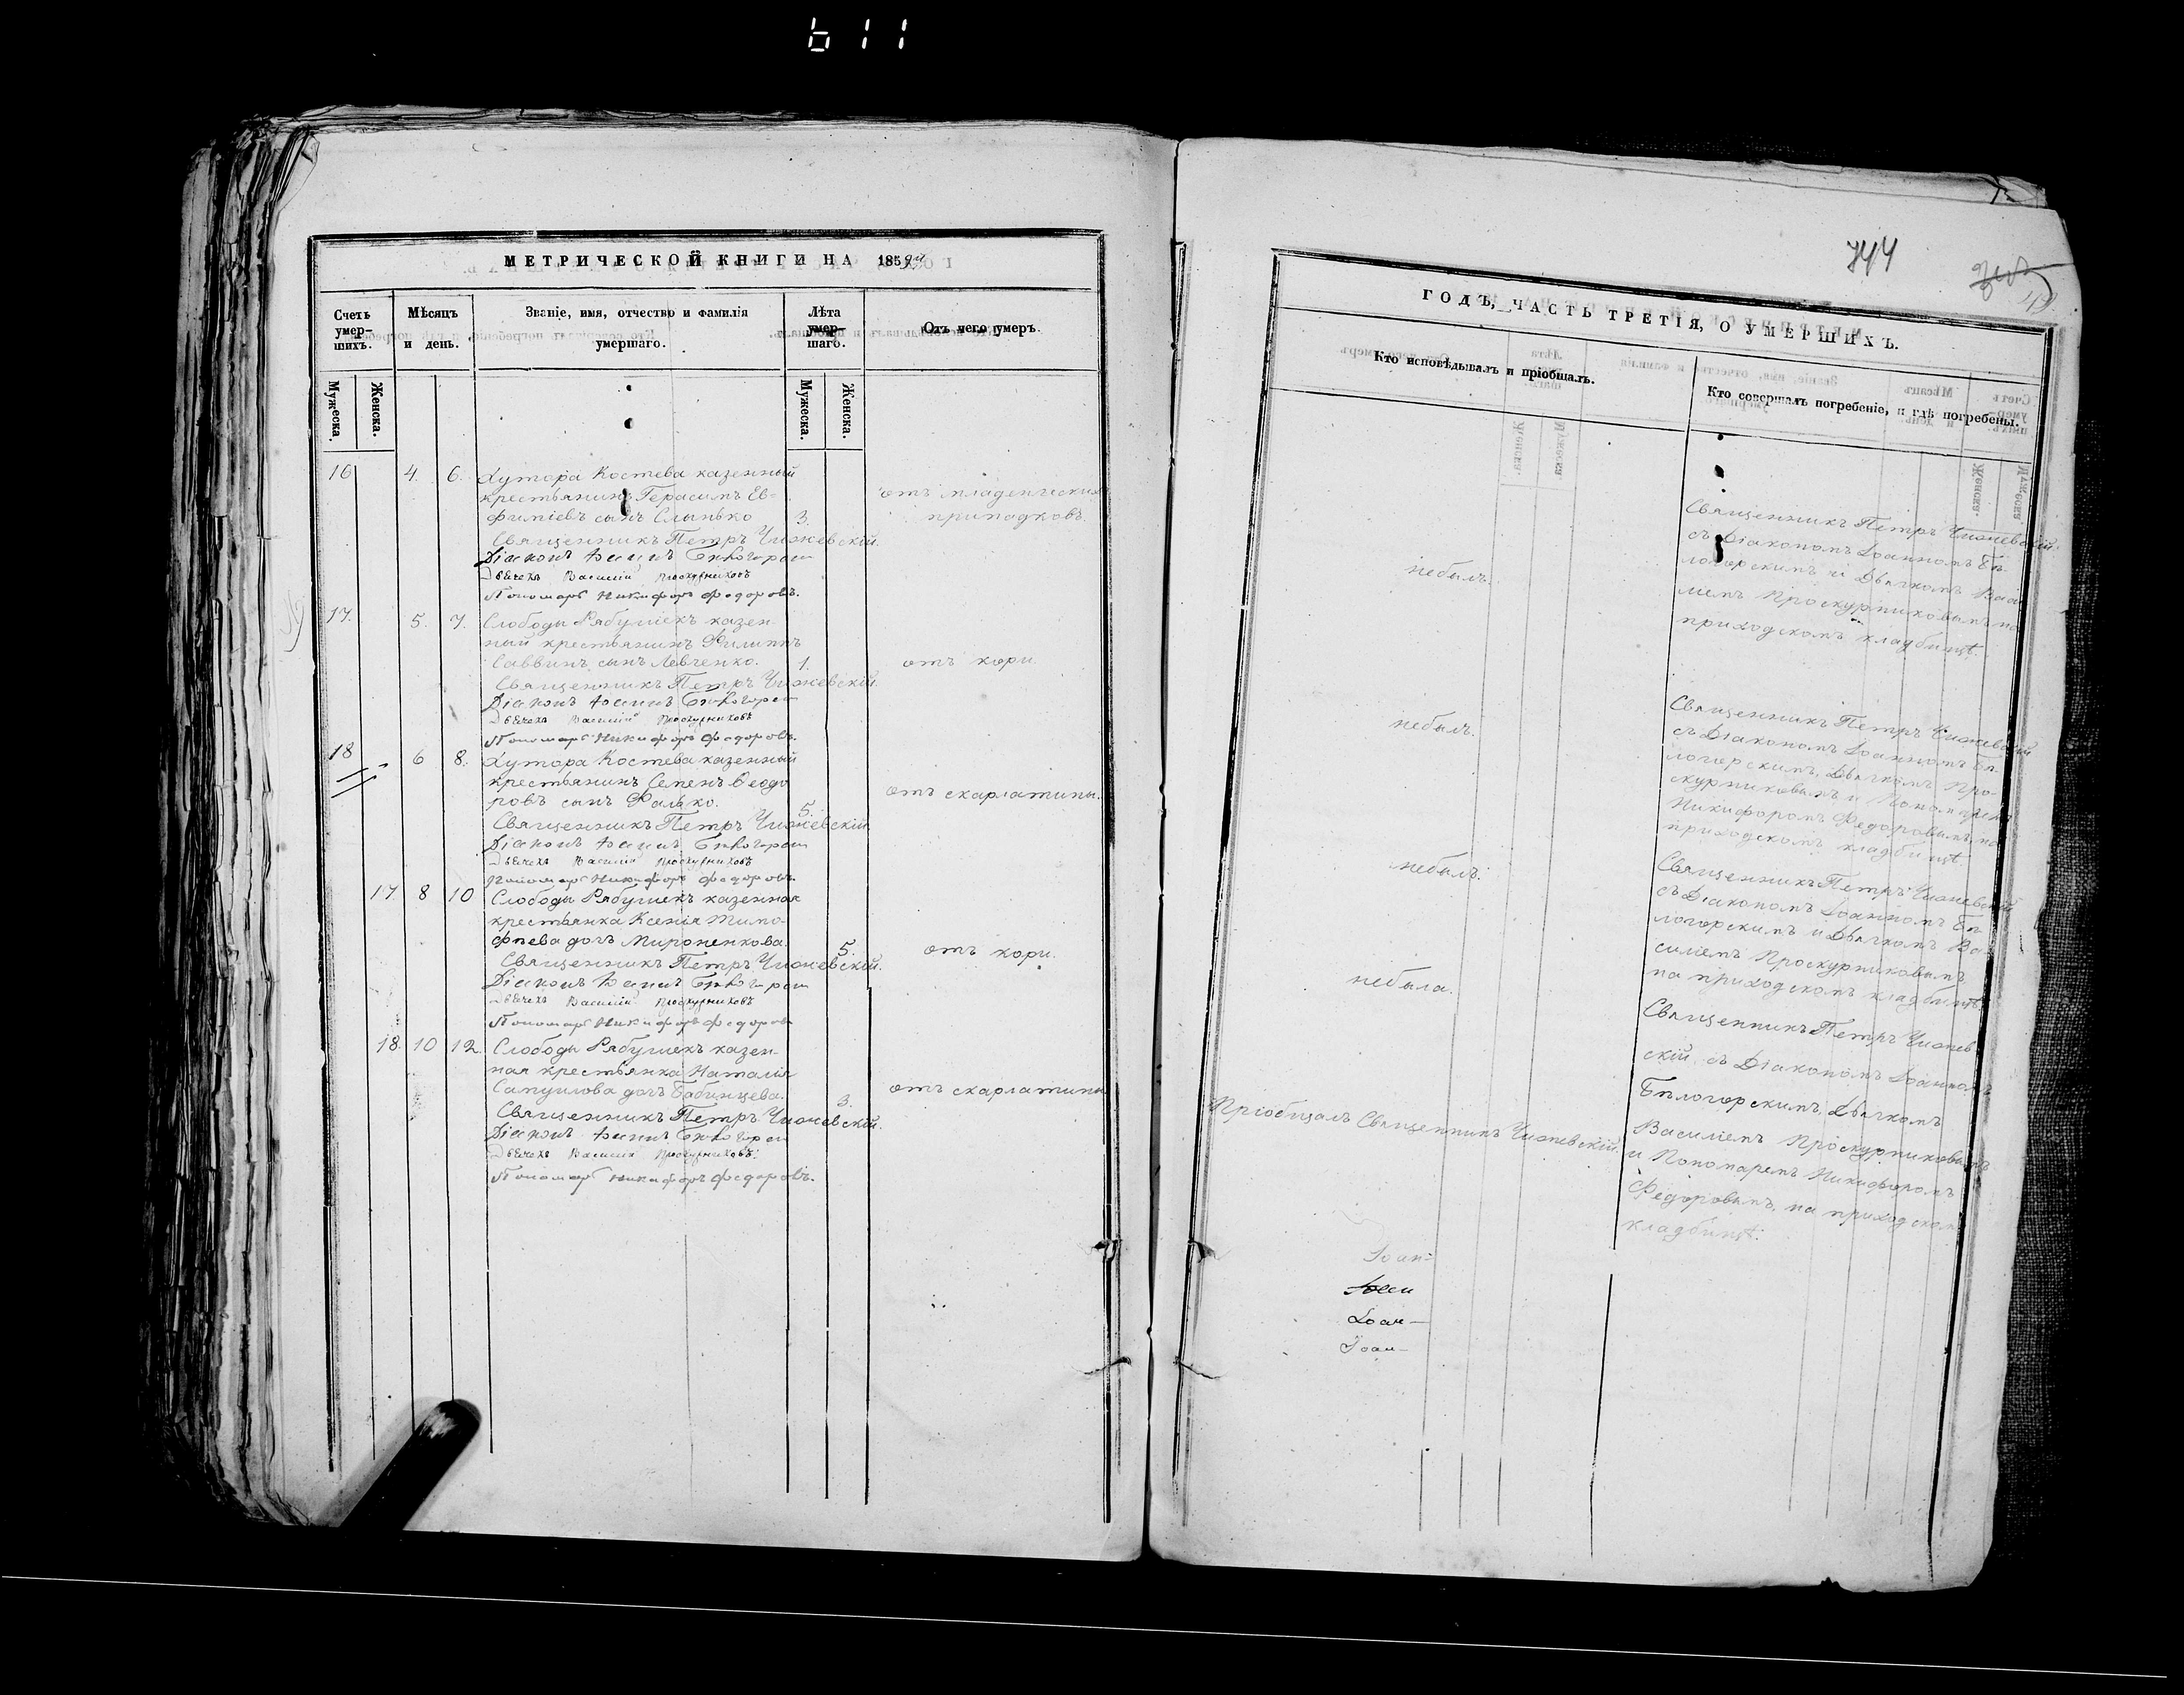 611
МЕТРИЧЕСКОЙ КНИГИ НА 185
Счетъ умер-шихъ.
Мѣсяцъ и день.
Званіе, имя, отчество и фамилія умершаго.
Лѣта умер-шаго.
Отъ чего умеръ.
Мужеска.
Женска.
Мужеска.
Женска.
16 4. 6. Хутора Костева казенный
крестьянинъ Герасимъ Ев-
фиміевъ сынъ Слынько 3.
отъ младенческихъ
припадковъ.
Священникъ Петръ Чижевскій.
Діаконъ Іоаннъ Бѣлогорск
Дьячекъ Василій Проскурниковъ
Пономарь Никифоръ Федоровъ.
17. 5. 7. Слободы Рябушекъ казен-
ный крестьянинъ Филиппъ
Саввинъ сынъ Левченко. 1. отъ кори.
Священникъ Петръ Чижевскій.
Діаконъ Іоаннъ Бѣлогорск
Дьячекъ Василій Проскурниковъ
Пономарь Никифоръ Федоровъ.
18 6 8. Хутора Костева казенный
крестьянинъ Семенъ Ѳеодо
ровъ сынъ Фалько. 5. отъ скарлатины.
Священникъ Петръ Чижевскій.
Діаконъ Іоаннъ Бѣлогорск
Дьячекъ Василій Проскурниковъ
Пономарь Никифоръ Федоровъ.
17. 8 10 Слободы Рябушекъ казенная
крестьянка Ксенія Тимо-
фѣева дочь Мироненкова. 5. отъ кори.
Священникъ Петръ Чижевскій.
Діаконъ Іоаннъ Бѣлогорск
Дьячекъ Василій Проскурниковъ
Пономарь Никифоръ Федоровъ
18. 10 12. Слободы Рябушекъ казен-
ная крестьянка Наталія
Самуилова дочь Бабинцева. 3. отъ скарлатины
Священникъ Петръ Чижевскій.
Діаконъ Іоаннъ Бѣлогорск
Дьячекъ Василій Проскурниковъ.
Пономарь Никифоръ Федоровъ.
744
ГОДЪ, ЧАСТЬ ТРЕТІЯ, О УМЕРШИХЪ.
Кто исповѣдывалъ и пріобщалъ.
Кто совершалъ погребеніе, и гдѣ погребены.
небылъ.
Священникъ Петръ Чижевскій.
съ Діакономъ Іоанномъ Бѣ-
логорскимъ и Дьячкомъ Васи
ліемъ Проскурниковымъ на
приходскомъ кладбищѣ.
небылъ.
Священникъ Петръ Чижевскій
съ Діакономъ Іоанномъ Бѣ-
логорскимъ, Дьячкомъ Про-
скурниковымъ и Пономаремъ
Никифоромъ Федоровымъ, на
приходскомъ кладбищѣ
небылъ.
Священникъ Петръ Чижевскій
съ Діакономъ Іоанномъ Бѣ
логорскимъ и Дьячкомъ Ва-
силіемъ Проскурниковымъ
на приходскомъ кладбищѣ.
небыла.
Священникъ Петръ Чижев-
скій, съ Діакономъ Іоанномъ
Бѣлогорскимъ, Дьячкомъ
Василіемъ Проскурниковымъ
и Пономаремъ Никифоромъ
Федоровымъ, на приходском
кладбищѣ.
Пріобщалъ Священникъ Чижевскій.
Іоан-
Іоан-
Іоан-